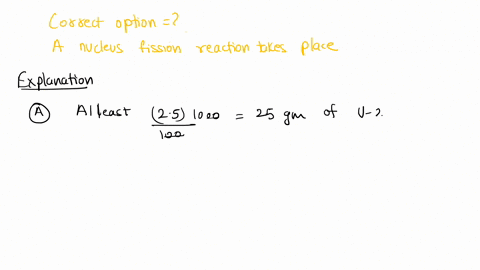 Correct option = ?
A nucleus fission reaction takes place
Explanation
A Atleast (2.5) 1000 / 100 = 25 gm of U-